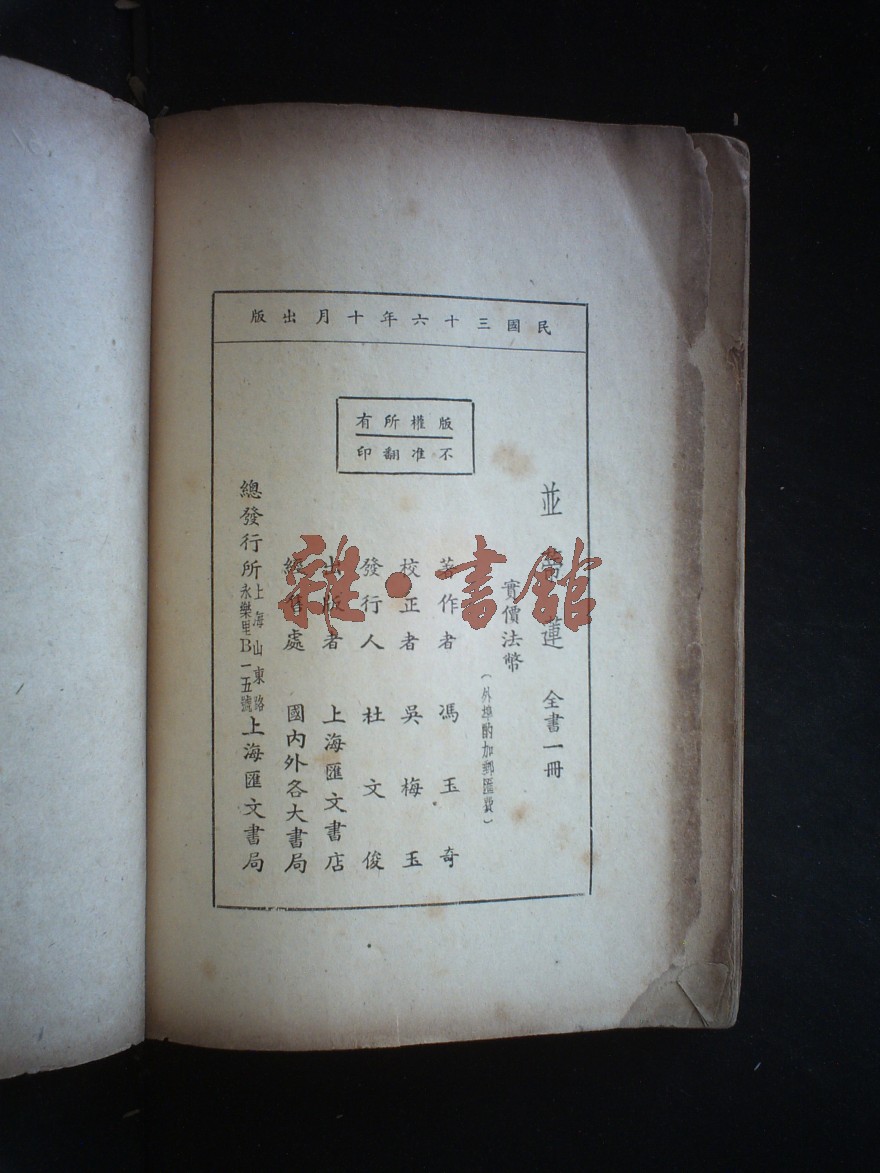 民國三十六年十月出版
版權所有
不准翻印
並蒂蓮 全書一冊
實價法幣
(外埠酌加郵匯費)
著作者 馮玉奇
校正者 吳梅玉
發行人 杜文俊
出版者 上海匯文書店
經售處 國內外各大書局
總發行所 上海山東路永樂里B一五號 上海匯文書局
雜·書館